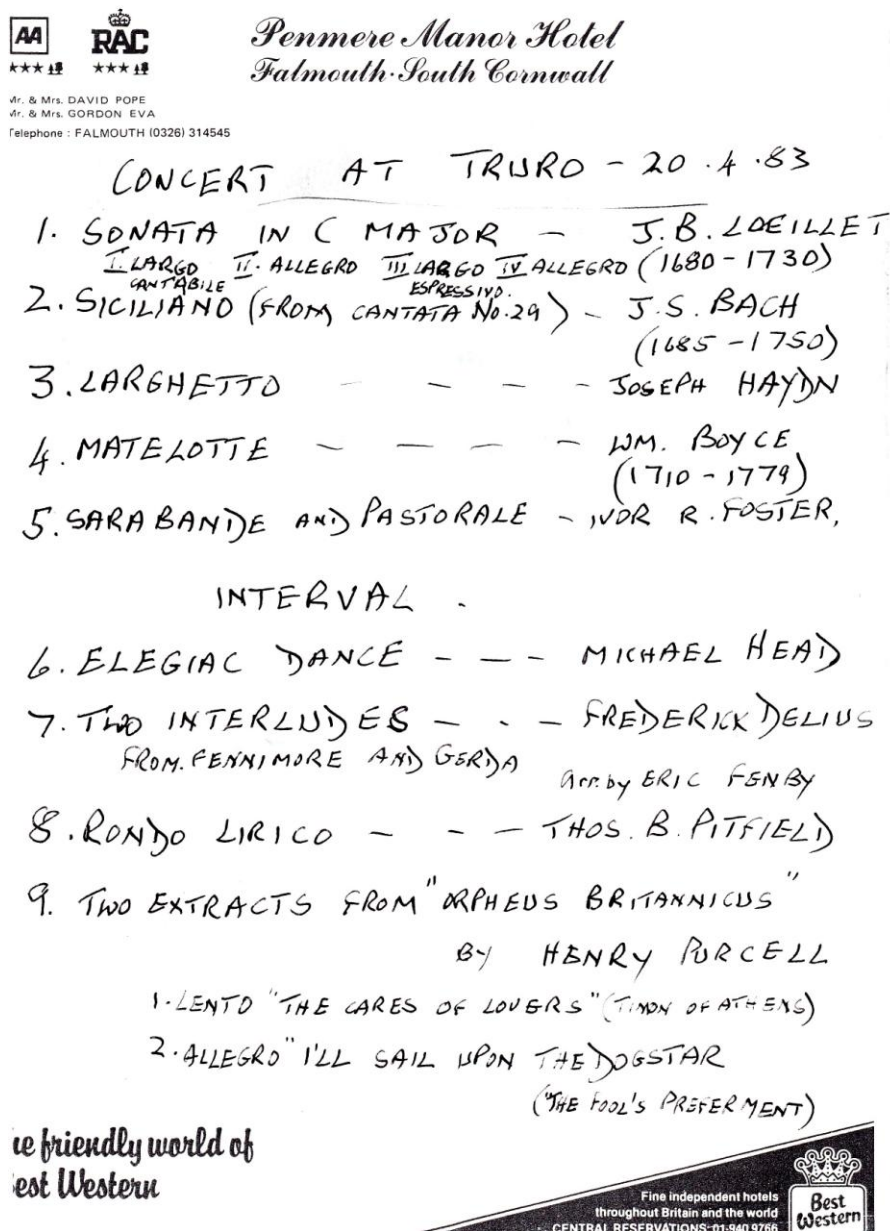 AA RAC
Penmere Manor Hotel
Falmouth·South Cornwall
Mr. & Mrs. DAVID POPE
Mr. & Mrs. GORDON EVA
Telephone : FALMOUTH (0326) 314545
CONCERT AT TRURO - 20.4.83
1. SONATA IN C MAJOR - J.B. LOEILLET
I LARGO CANTABILE II. ALLEGRO III LARGO ESPRESSIVO. IV ALLEGRO (1680-1730)
2. SICILIANO (FROM CANTATA No.29) - J.S. BACH
(1685-1750)
3. LARGHETTO - - - - JOSEPH HAYDN
4. MATELOTTE - - - - WM. BOYCE
(1710-1779)
5. SARABANDE AND PASTORALE - IVOR R. FOSTER.
INTERVAL.
6. ELEGIAC DANCE - - - MICHAEL HEAD
7. TWO INTERLUDES - - - FREDERICK DELIUS
FROM. FENNIMORE AND GERDA
arr. by ERIC FENBY
8. RONDO LIRICO - - - THOS. B. PITFIELD
9. TWO EXTRACTS FROM "ORPHEUS BRITANNICUS"
BY HENRY PURCELL
1. LENTO "THE CARES OF LOVERS" (TIMON OF ATHENS)
2. ALLEGRO "I'LL SAIL UPON THE DOGSTAR
("THE FOOL'S PREFERMENT)
he friendly world of
est Western
Fine independent hotels
throughout Britain and the world
CENTRAL RESERVATIONS: 01-940 9766
Best
Western